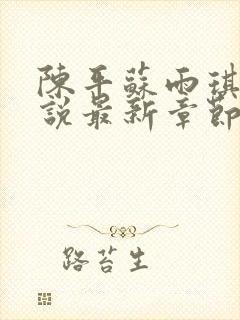 陳平蘇雨琪
說最新章節
路苔生